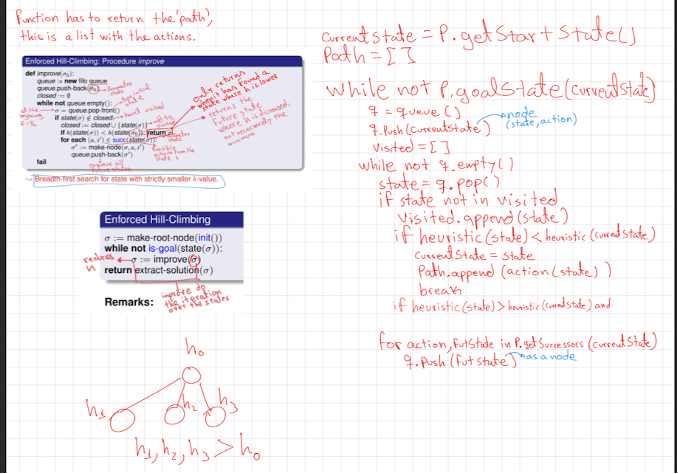 function has to return the 'path',
this is a list with the actions.
Enforced Hill-Climbing: Procedure improve
def improve(n₀):
queue := new fifo queue
queue.push-back(n₀)
closed := ∅
while not queue.empty():
σ = queue.pop-front()
if state(σ) ∉ closed:
closed := closed ∪ {state(σ)}
if h(state(σ)) < h(state(n₀)): return σ
for each ⟨a, s'⟩ ∈ succ(state(σ)):
σ' := make-node(σ, a, s')
queue.push-back(σ')
fail
only returns
when it has found a
state where h is lower
returns the
future state
where h is decreased,
not necessarily the
minimum
⇝ Breadth-first search for state with strictly smaller h-value.
Enforced Hill-Climbing
σ := make-root-node(init())
while not is-goal(state(σ)):
σ := improve(σ)
return extract-solution(σ)
reduces
h
Remarks:
improve do
the iteration
over the states
h₀
h₁
h₂
h₃
h₁, h₂, h₃ > h₀
currentstate = P.getStartState()
Path = []
while not P.goalState(currentState)
q = queue()
q.Push(currentState)
node
(state, action)
visited = []
while not q.empty()
state = q.pop()
if state not in visited
visited.append(state)
if heuristic(state) < heuristic(currentState)
currentState = state
Path.append(action(state))
break
if heuristic(state) > heuristic(currentState) and
for action, futState in P.getSuccessors(currentState)
q.Push(futState)
as a node